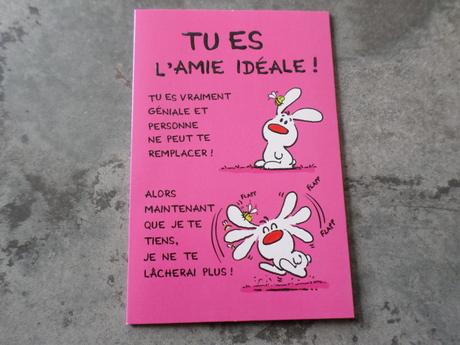 TU ES
L'AMIE IDÉALE !
TU ES VRAIMENT
GÉNIALE ET
PERSONNE
NE PEUT TE
REMPLACER !
ALORS
MAINTENANT
QUE JE TE
TIENS,
JE NE TE
LÂCHERAI PLUS !
FLAPP
FLAPP
FLAPP